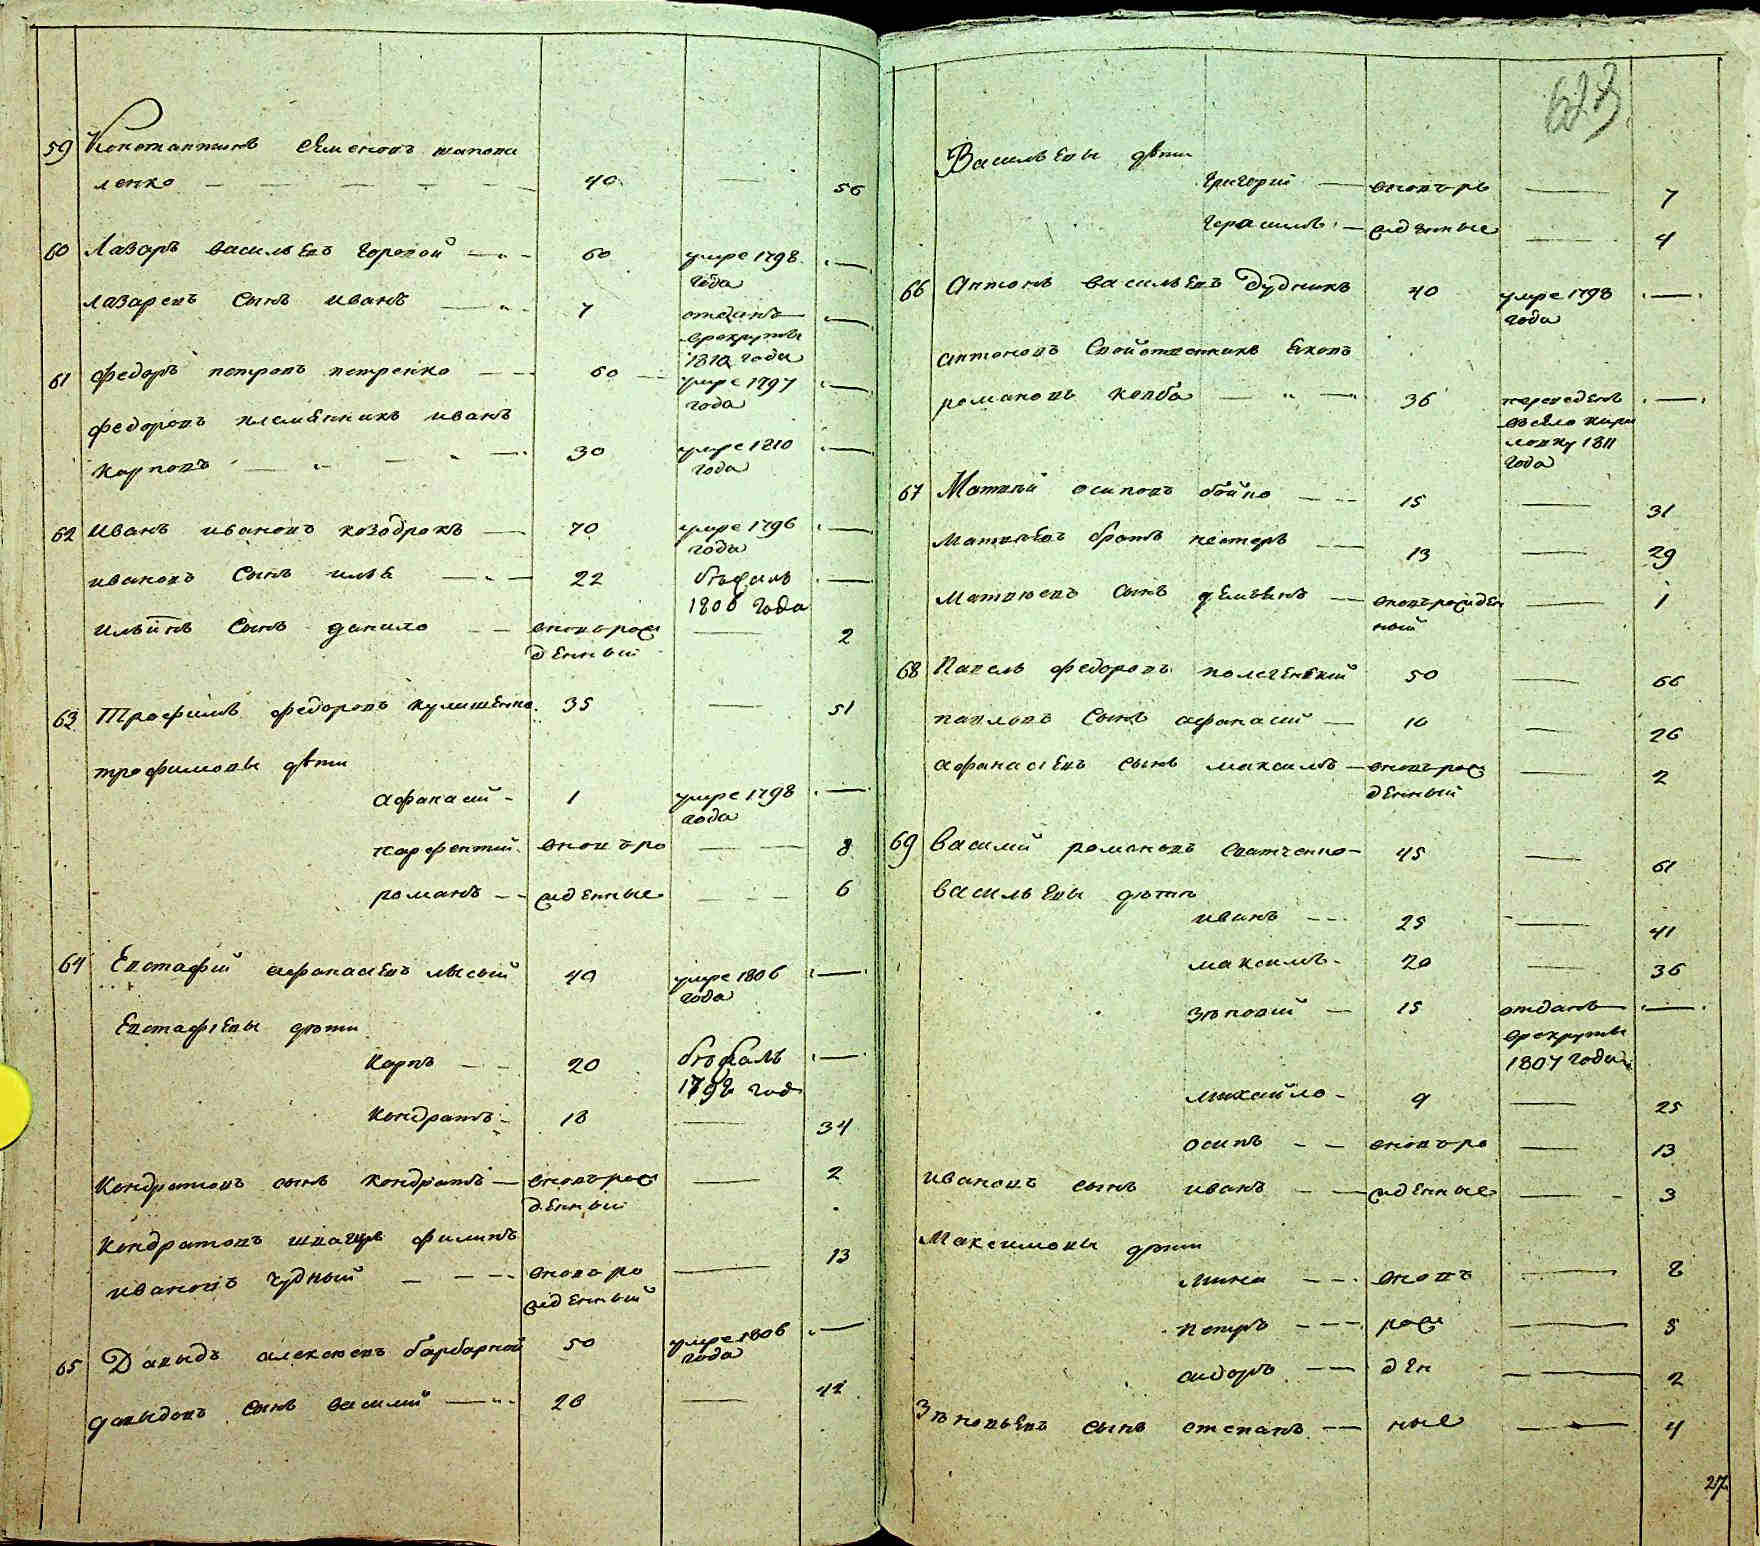 59 Константинъ Семеновъ шапова
ленко — — — — 40 — 56
60 Лазаръ васильевъ Горовой — 60 умре 1798 —
года
лазаревъ сынъ иванъ — 7 отданъ —
врекруты
1810 года
61 федоръ петровъ петренко — 60 — умре 1797 —
года
федоровъ племенникъ иванъ
карповъ — — — 30 умре 1810 —
года
62 иванъ ивановъ козодрокъ — 70 умре 1796 —
года
ивановъ сынъ илья — 22 бѣжалъ —
1806 года
ильинъ сынъ данило — вновьрож — 2
денный
63 Трофимъ федоровъ кулишенко. 35 — 51
трофимовы дѣти
афанасий - 1 умре 1798 —
года
парфентий. вновъро — 8
романъ — жденные — 6
64 Евстафий афанасиевъ лысый 40 умре 1806 —
года
Евстафиевы дѣти
карпъ — 20 бѣжалъ —
1792 год
кондратъ — 18 — 34
кондратовъ сынъ кондратъ — вновьрож — 2
денный
кондратовъ швагеръ филипъ
ивановъ чудный — — — вновъро — 13
жденный
65 Давыдъ алексѣевъ барбарной 50 умре 1806 —
года
давыдовъ сынъ василий — 26 — 42
683
Васильевы дѣти
григорий — вновъро — 7
герасимъ — жденные — 4
66 Антонъ васильевъ Дудникъ 40 умре 1798 —
года
антоновъ свойственникъ яковъ
романовъ колба — — 36 переведенъ —
въсело кири
ловку 1811
года
67 Матвѣй осиповъ бойко — 15 — 31
матвѣевъ братъ несторъ — 13 — 29
матвѣевъ сынъ демьянъ — вновърожден — 1
ный
68 Павелъ федоровъ полегенький 50 — 66
павловъ сынъ афанасий — 10 — 26
афанасиевъ сынъ максимъ — вновърож — 2
денный
69 василий романовъ сватченко — 45 — 61
васильевы дѣти
иванъ — 25 — 41
максимъ - 20 — 36
Зѣновий — 15 отданъ —
врекруты
1807 года
михайло - 9 — 25
осипъ — вновъро — 13
ивановъ сынъ иванъ — жденные — 3
Максимовы дѣти
мина — вновъ — 8
петръ — рож — 5
сидоръ — ден — 2
Зѣновьевъ сынъ степанъ — ные — 4
27